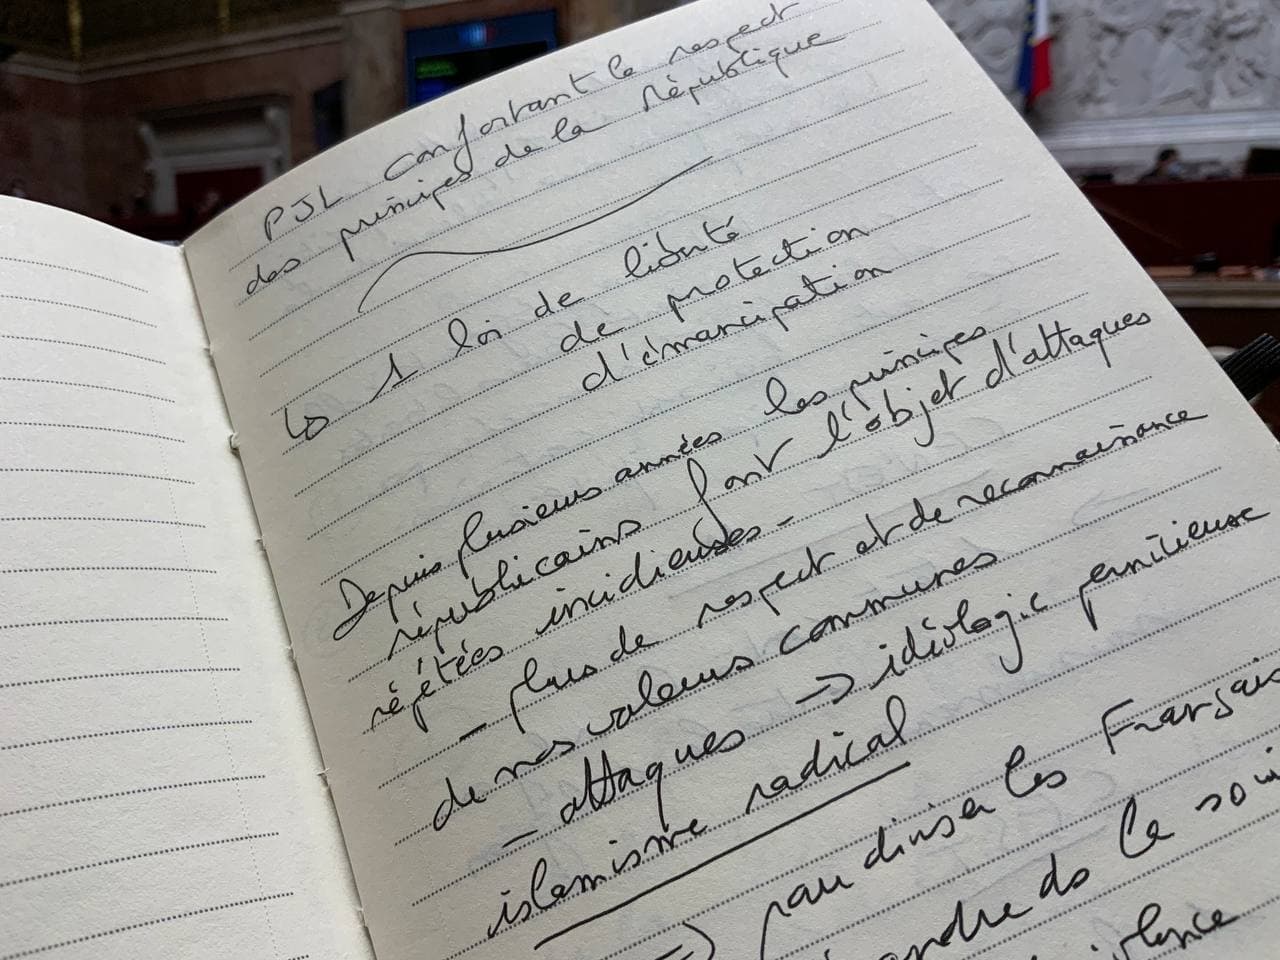 PJL confortant le respect
des principes de la république
↳ 1 loi de liberté
de protection
d'émancipation
Depuis plusieurs années les principes
républicains font l'objet d'attaques
répétées incidieuses -
- plus de respect et de reconnaissance
de nos valeurs communes
- attaques → idéologie pernicieuse
islamisme radical
⇒ pour diviser les Français
le